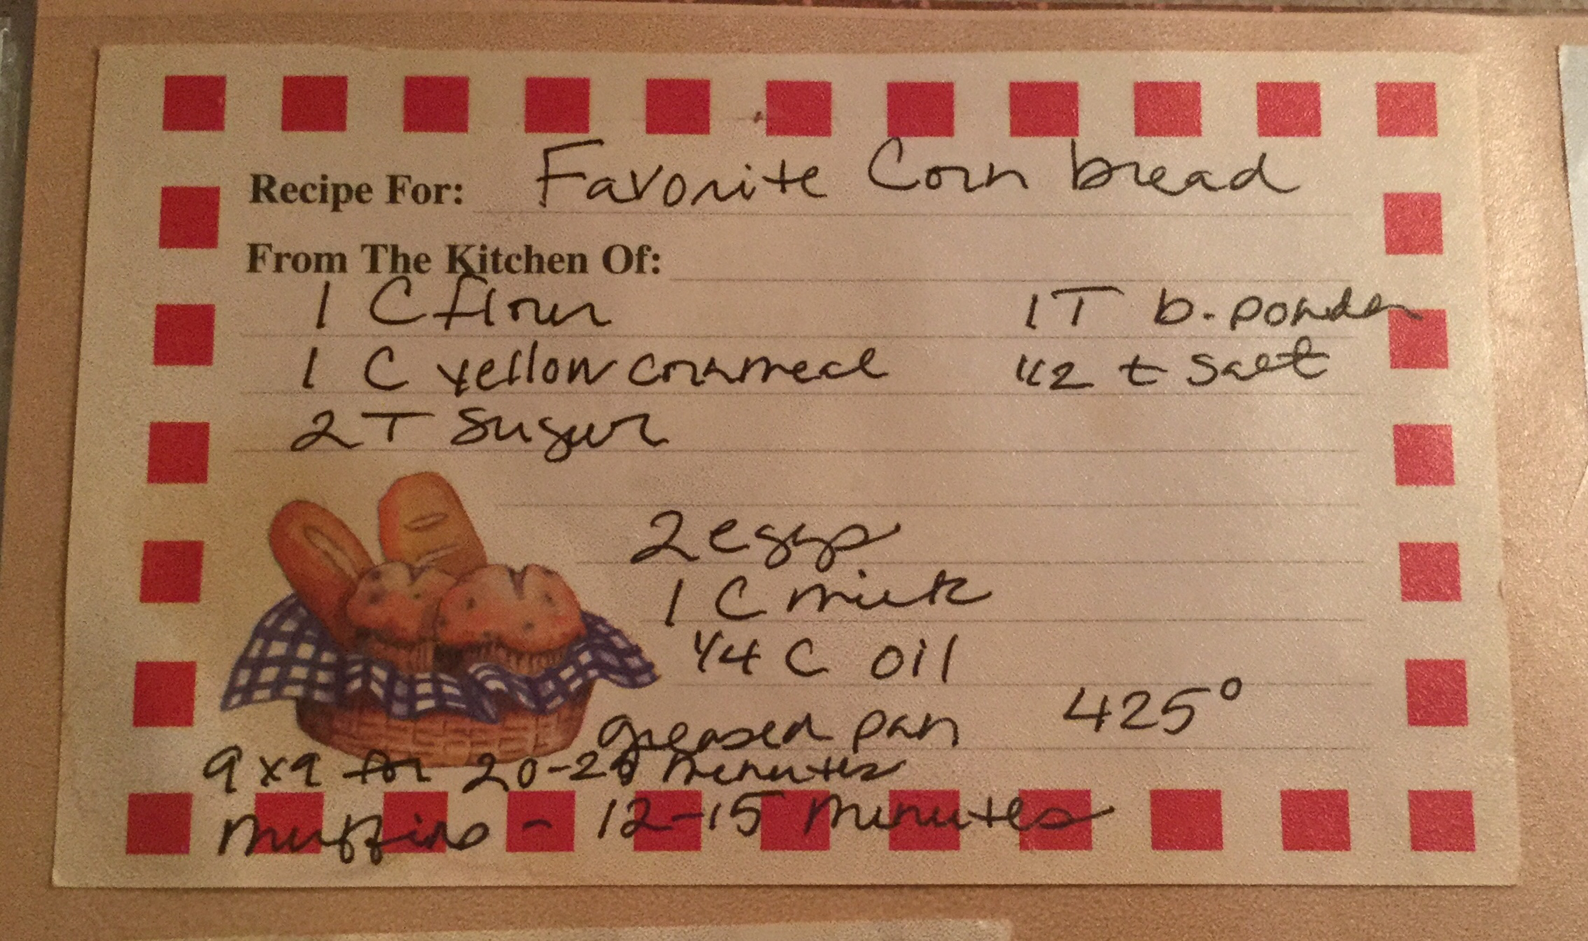 Recipe For: Favorite Corn bread
From The Kitchen Of:
1 C flour 1T b. powder
1 C yellow cornmeal 1/2 t salt
2 T sugar
2 eggs
1 C milk
1/4 C oil
greased pan 425°
9x9 for 20-25 minutes
muffins - 12-15 minutes